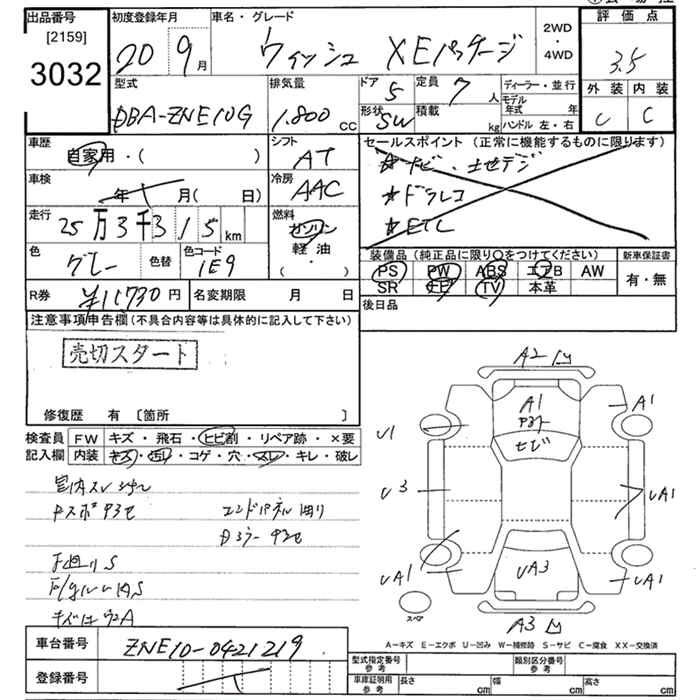 出品番号 初度登録年月 車名・グレード 2WD ・ 4WD 評価点
[2159]
3032 20 9月 ウィッシュ XEパッケージ 3.5
型式 排気量 ドア 5 定員 7人 ディーラー・並行 外装 内装
DBA-ZNE10G 1.800cc 形状 SW 積載 kg モデル年式 年 C C
ハンドル 左・右
車歴 シフト セールスポイント (正常に機能するものに限ります)
自家用・( ) AT ★ナビ・土セデジ
車検 冷房 ★ドラレコ
年 月(日) AAC ★ETC
走行 燃料
25万3千315km ガソリン
色 色替 色コード 軽油
グレー 1E9 ・( )
装備品 (純正品に限り○をつけてください) 新車保証書
PS PW ABS エアB AW 有・無
SR ナビ TV 本革
R券 ¥11730円 名変期限 月 日 後日品
注意事項申告欄(不具合内容等は具体的に記入して下さい)
売切スタート
修復歴 有 〔箇所 〕
検査員 FW キズ・飛石・ヒビ割・リペア跡・×要
記入欄 内装 キズ・汚レ・コゲ・穴・スレ・キレ・破レ
A2
A1 A1
U1
ヒビ
U3 UA1
UA1 UA3 UA1
スペア
A3
エンドパネル
A－キズ E－エクボ U－凹み W－補修跡 S－サビ C－腐食 XX－交換済
車台番号 ZNE10-0421219
登録番号
型式指定番号 参考 類別区分番号 参考
車庫証明用 参考 長さ cm 幅 cm 高さ cm